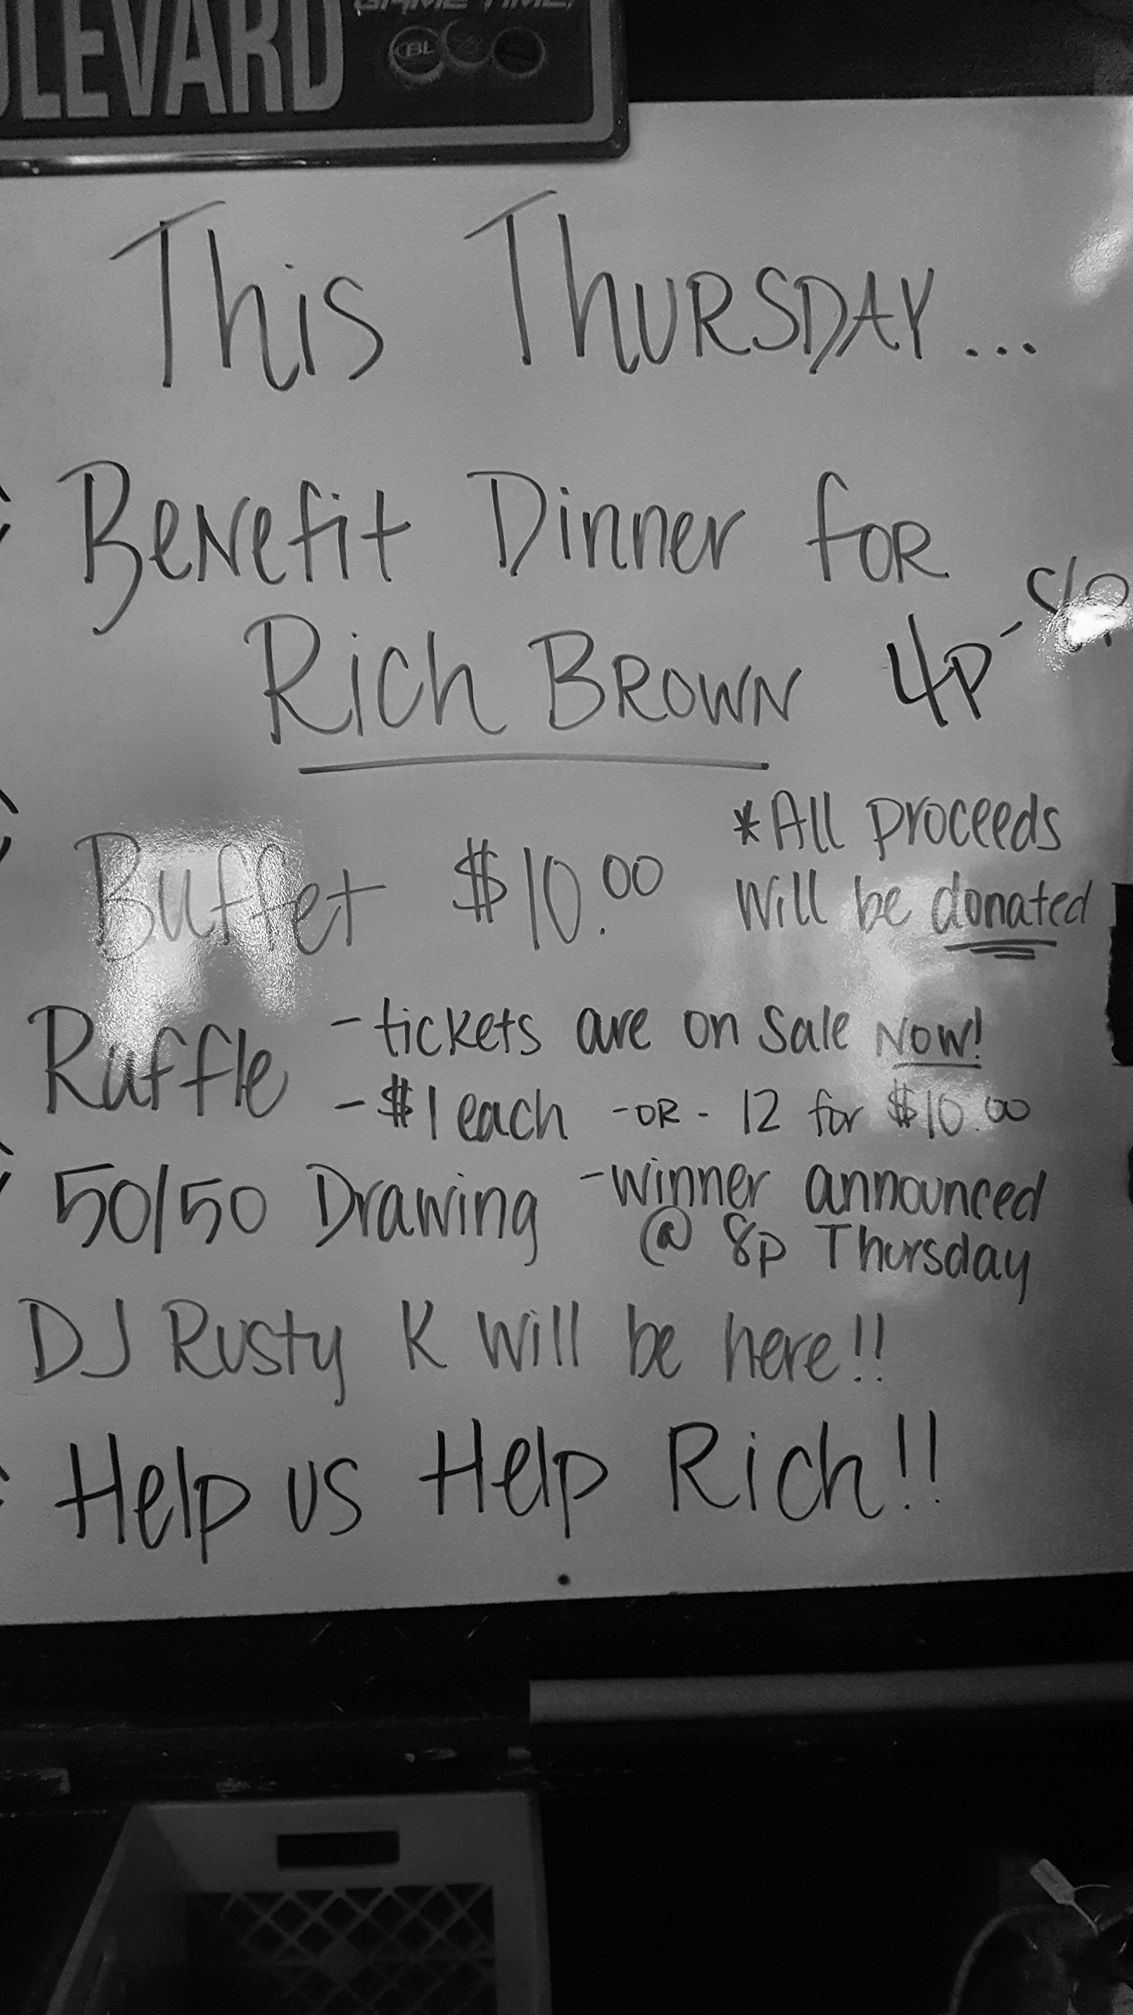 GAME TIME!
CBL
This Thursday...
Benefit Dinner for
Rich Brown 4p -
Buffet $10.00
*All proceeds
will be donated
Raffle
- tickets are on sale NOW!
- $1 each -OR- 12 for $10.00
50/50 Drawing
- winner announced
@ 8p Thursday
DJ Rusty K will be here!!
Help us Help Rich!!